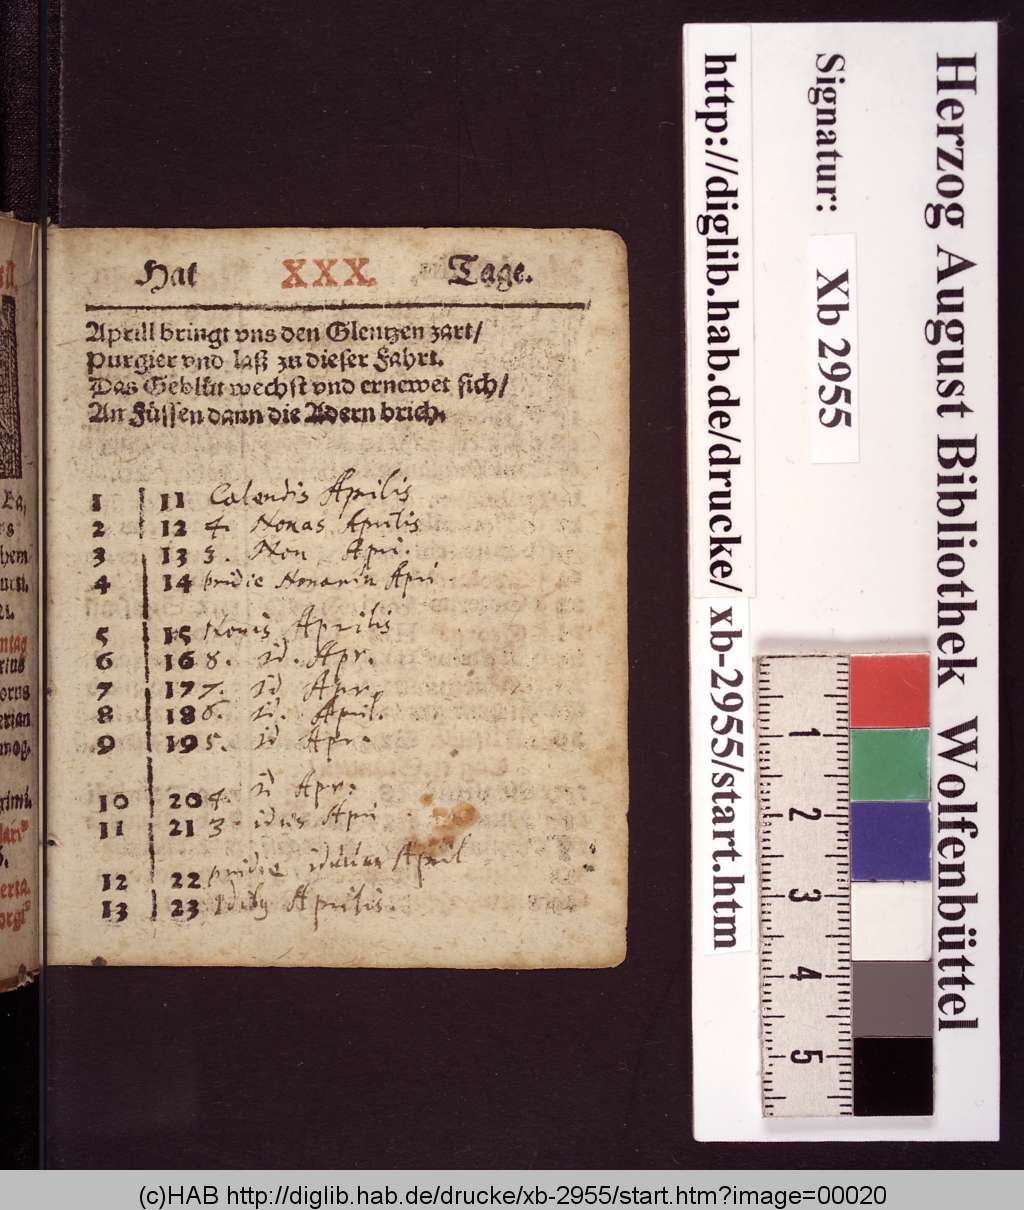 Hat XXX. Tage.
Aprill bringt vns den Glentzen zart/
Purgier vnd laß zu dieser Fahrt.
Das Geblüt wechst vnd ernewet sich/
An Füssen dann die Adern brich.
1 11 Calendis Aprilis
2 12 4. Nonas Aprilis
3 13 3. Non Apri.
4 14 pridie Nonarũ Apri
5 15 Nonis Aprilis
6 16 8. id. Apr.
7 17 7. id Apr.
8 18 6. id. April.
9 19 5. id Apr.
10 20 4. id Apr.
11 21 3. idus Apri
12 22 pridie iduum April
13 23 Idibꝫ Aprilis.
Herzog August Bibliothek Wolfenbüttel
Signatur: Xb 2955
http://diglib.hab.de/drucke/ xb-2955/start.htm
1
2
3
4
5
(c)HAB http://diglib.hab.de/drucke/xb-2955/start.htm?image=00020